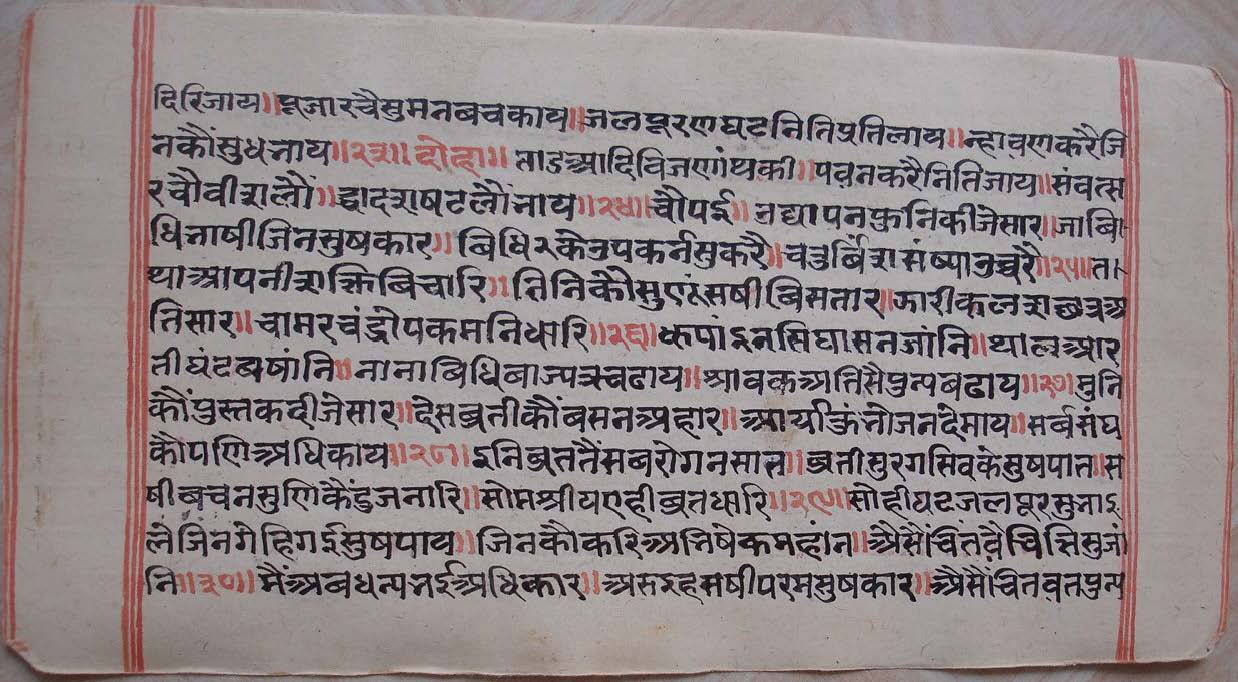 दिरिजाय॥पूजारचैसुमनबचकाय॥जलपूरणघटनितिप्रतिलाय॥न्हावणकरैजि
नकौंसुभनाय॥२३॥दोहा॥ताडआदिविजणांथकी॥पवनकरैनितिजाय॥संवत्स
रचौवीशलौं॥द्वादशषटलौंभाय॥२४॥चौपई॥उद्यापनफुनिकीजेसार॥जाबि
धिभाषीजिनसुषकार॥बिधिरकेउपकर्नसुकरै॥चतुर्बिंशसंष्याउच्चरै॥२५॥त
थाआपनीशक्तिबिचारि॥तिनिकौसुणूंसषीबिसतार॥फारीकलशछत्रअ
तिसार॥चामरचंद्रोपकमनिधारि॥२६॥धूपांइनसिंघासनजांनि॥थालआर
तीघंटबषांनि॥नानाबिधिबाज्यत्रचढाय॥श्रावकअतिसैपुन्यबढाय॥२७॥मुनि
कौंपुस्तकदीजेसार॥देसब्रतीकौंबसनअहार॥आर्याकूंभोजनदेमाय॥सर्बसंघ
कौपणिअधिकाय॥२८॥इनिब्रततैंसबरोगनसात॥ब्रतीसुरगसिवकेसुषपात॥स
षीबचनसुणिकैंदुजनारि॥सोमश्रीयहीब्रतधारि॥२९॥सोहीघटजलपूरसुभाइ
लेजिनगेहिगईसुषपाय॥जिनकौकरिअभिषेकमहांन॥असैंचिंतवैचित्तिसुजां
नि॥३०॥मैंअबधन्यभईअधिकार॥असइहसषीपरमसुषकार॥असैंचितवतपुन्य